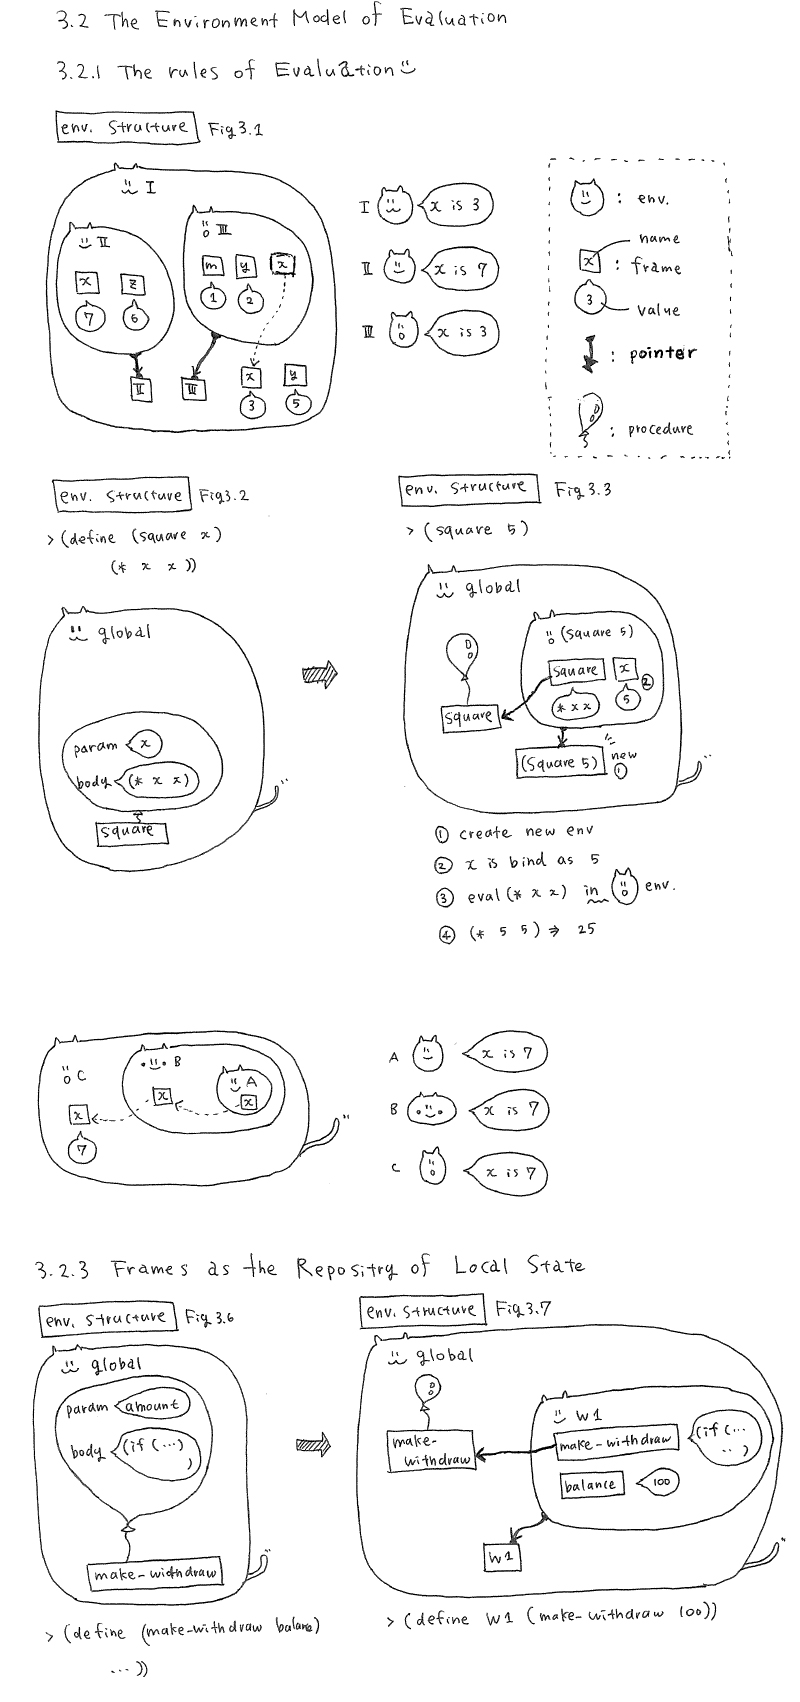 3.2 The Environment Model of Evaluation
3.2.1 The rules of Evaluation
env. Structure Fig 3.1
I
II
III
x
z
7
6
m
y
x
1
2
II
III
x
y
3
5
I x is 3
II x is 7
III x is 3
: env.
name
x : frame
3
value
: pointer
: procedure
env. Structure Fig3.2
> (define (square x)
(* x x))
global
param x
body (* x x)
square
env. Structure Fig 3.3
> (square 5)
global
(square 5)
square
x
②
* x x
5
square
(square 5)
new
①
① create new env
② x is bind as 5
③ eval (* x x) in env.
④ (* 5 5) ⇒ 25
C
B
A
x
x
x
7
A x is 7
B x is 7
C x is 7
3.2.3 Frames as the Repositry of Local State
env. Structure Fig 3.6
global
param amount
body (if (...)
)
make-withdraw
> (define (make-withdraw balane)
...))
env. Structure Fig 3.7
global
make-
withdraw
W1
make-withdraw
(if (...
.. )
balance
100
W1
> (define W1 (make-withdraw 100))